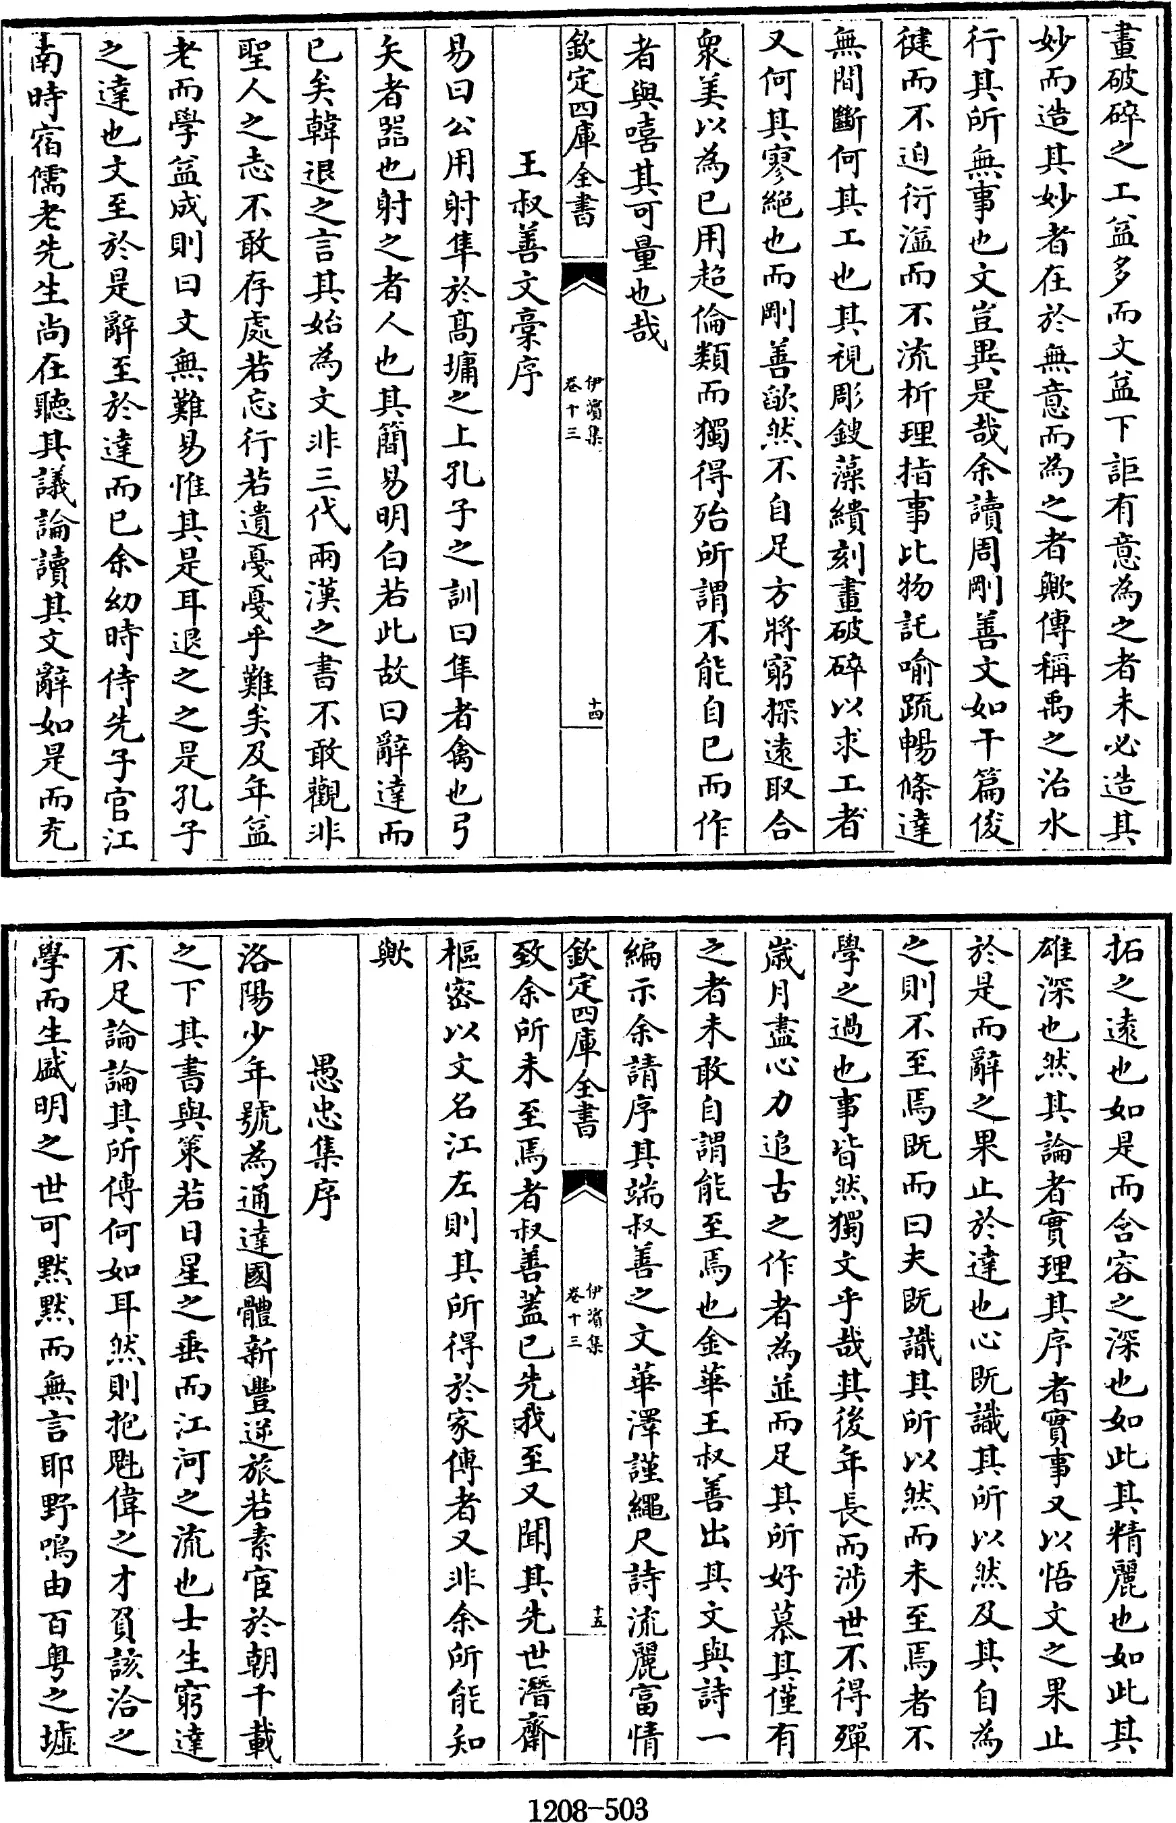 畫破碎之工益多而文益下詎有意為之者未必造其
妙而造其妙者在於無意而為之者歟傳稱禹之治水
行其所無事也文豈異是哉余讀周剛善文如干篇俊
健而不迫衍溢而不流析理指事比物託喻疏暢條達
無間斷何其工也其視彫鎪藻繢刻畫破碎以求工者
又何其寥絕也而剛善歉然不自足方將窮探遠取合
衆美以為已用超倫類而獨得殆所謂不能自已而作
者與嘻其可量也哉
欽定四庫全書
伊濱集
卷十三
十四
王叔善文稾序
易曰公用射隼於髙墉之上孔子之訓曰隼者禽也弓
矢者器也射之者人也其簡易明白若此故曰辭達而
已矣韓退之言其始為文非三代兩漢之書不敢觀非
聖人之志不敢存處若忘行若遺戞戞乎難矣及年益
老而學益成則曰文無難易惟其是耳退之之是孔子
之達也文至於是辭至於達而已余幼時侍先子官江
南時宿儒老先生尚在聽其議論讀其文辭如是而充
拓之遠也如是而含容之深也如此其精麗也如此其
雄深也然其論者實理其序者實事又以悟文之果止
於是而辭之果止於達也心既識其所以然及其自為
之則不至焉既而曰夫既識其所以然而未至焉者不
學之過也事皆然獨文乎哉其後年長而涉世不得殫
歲月盡心力追古之作者為並而足其所好慕其僅有
之者未敢自謂能至焉也金華王叔善出其文與詩一
編示余請序其端叔善之文華澤謹繩尺詩流麗富情
欽定四庫全書
伊濱集
卷十三
十五
致余所未至焉者叔善蓋已先我至又聞其先世潛齋
樞密以文名江左則其所得於家傳者又非余所能知
歟
愚忠集序
洛陽少年號為通達國體新豐逆旅若素宦於朝千載
之下其書與策若日星之垂而江河之流也士生窮達
不足論論其所傳何如耳然則抱魁偉之才負該洽之
學而生盛明之世可黙黙而無言耶野鳴由百粵之墟
1208-503